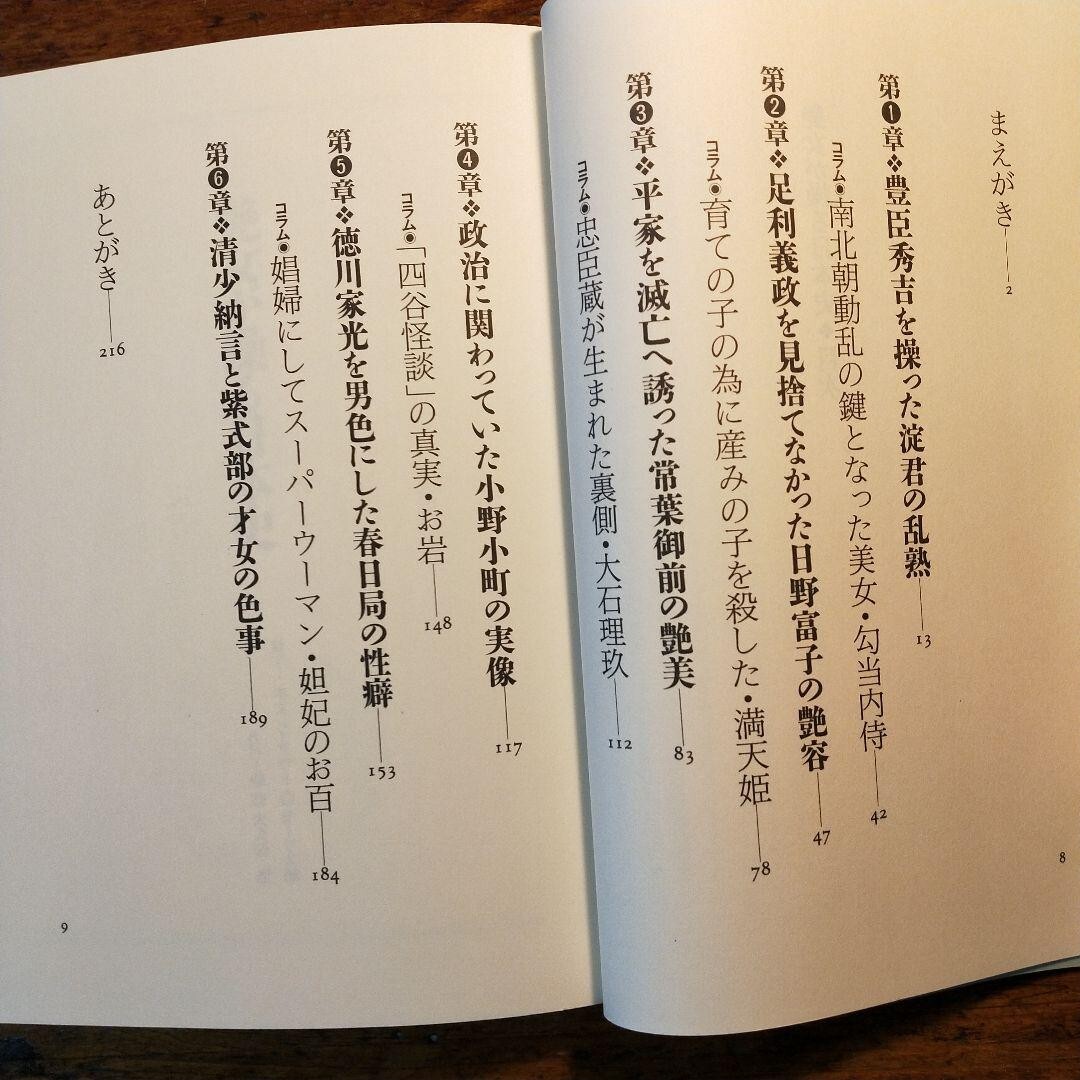 まえがき――2
第❶章❖豊臣秀吉を操った淀君の乱熟――13
コラム◉南北朝動乱の鍵となった美女・勾当内侍――42
第❷章❖足利義政を見捨てなかった日野富子の艶容――47
コラム◉育ての子の為に産みの子を殺した・満天姫――78
第❸章❖平家を滅亡へ誘った常葉御前の艶美――83
コラム◉忠臣蔵が生まれた裏側・大石理玖――112
8
第❹章❖政治に関わっていた小野小町の実像――117
コラム◉「四谷怪談」の真実・お岩――148
第❺章❖徳川家光を男色にした春日局の性癖――153
コラム◉娼婦にしてスーパーウーマン・妲妃のお百――184
第❻章❖清少納言と紫式部の才女の色事――189
あとがき――216
9